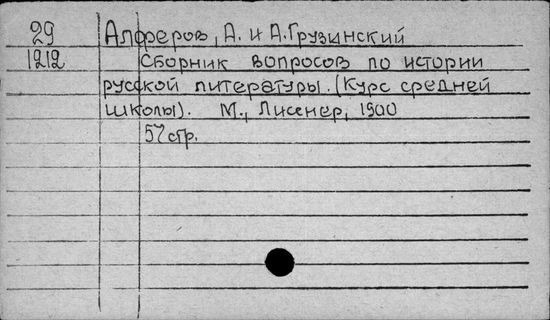 29 Алферов, А. и А. Грузинский
1212 Сборник вопросов по истории
русской литературы. (Курс средней
школы). М., Лисснер, 1900
57 стр.